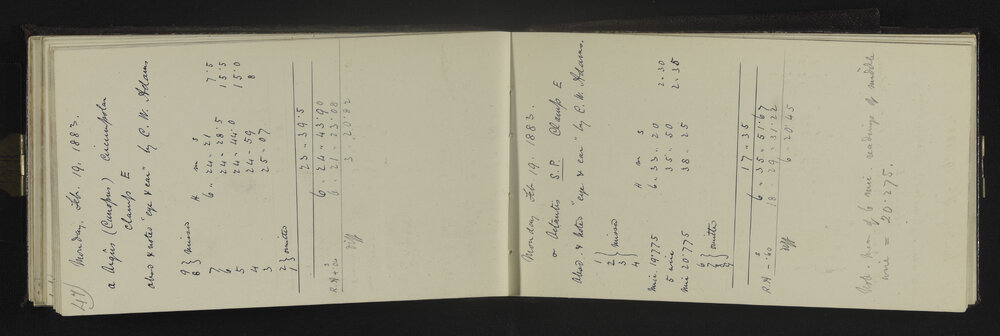 47
Monday, Feb. 19. 1883.
a Argûs (Canopus) Circumpolar
Clamp E
Obsd. & noted "eye & ear" by C. W. Adams
H m s
9 } missed
8
7 6 . 24 . 21 7.5
6 24 . 28.5 15.5
5 24 . 44.0 15.0
4 24 . 59 8
3 25 . 07
2 } omitted
1
23 . 39.5
6 . 24 . 43.90
R.A + 6 . 21 . 23.08
Diff 3 20.82
Monday Feb 19. 1883.
σ Octantis S.P. Clamp E
Obsd. & noted "eye & ear" by C. W. Adams.
H m s
1
2 } missed
3
4
mic 19.775 6 . 33 . 20
5 wire 35 . 50 2.30
mic 20.775 38 . 25 2.35
6
7 } omitted
8
9
17 . 35
6 . 35 . 51.67
R.A - .60 18 . 29 . 31.22
Diff 6 . 20.45
Mean of 6 mic. readings of middle
wire = 20.275.